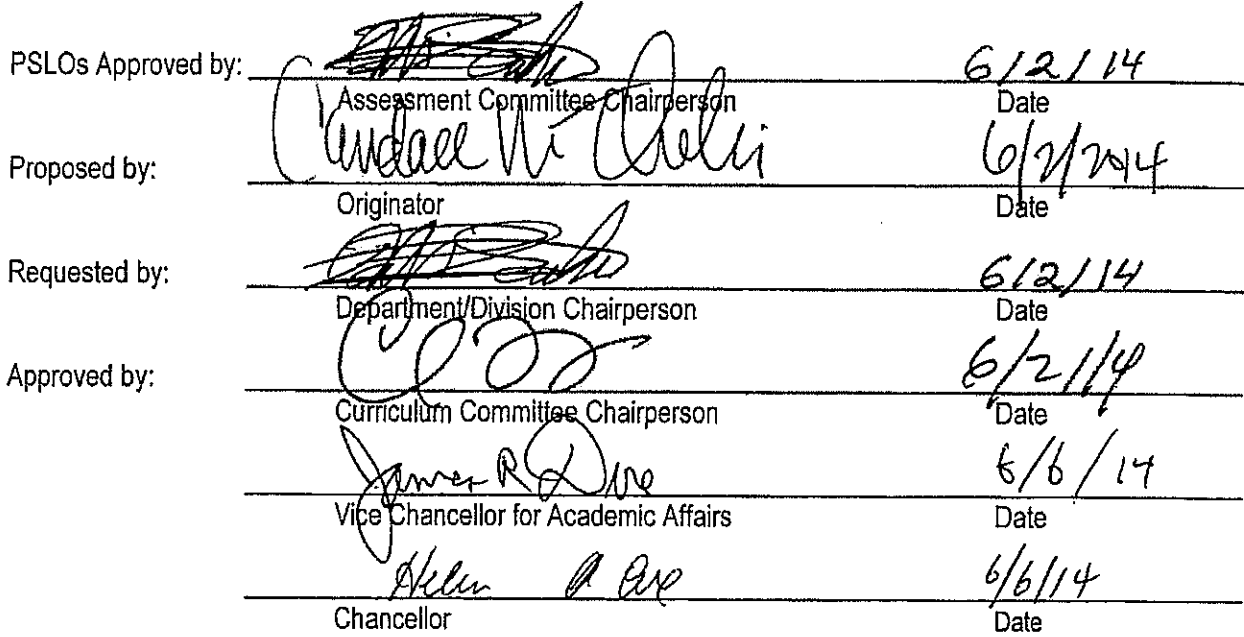 PSLOs Approved by: 6/2/14
Assessment Committee Chairperson Date
Proposed by: 6/2/2014
Originator Date
Requested by: 6/2/14
Department/Division Chairperson Date
Approved by: 6/2/14
Curriculum Committee Chairperson Date
James R 6/6/14
Vice Chancellor for Academic Affairs Date
Helen A 6/6/14
Chancellor Date